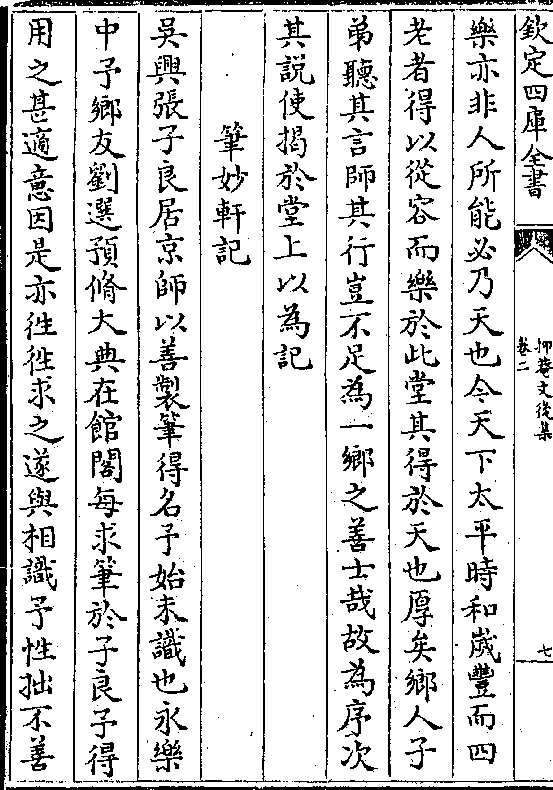 欽定四庫全書
抑菴文後集
卷二
七
樂亦非人所能必乃天也今天下太平時和歲豐而四
老者得以從容而樂於此堂其得於天也厚矣鄉人子
弟聽其言師其行豈不足為一鄉之善士哉故為序次
其説使揭於堂上以為記
筆妙軒記
吳興張子良居京師以善製筆得名予始未識也永樂
中予鄉友劉選預脩大典在館閣每求筆於子良予得
用之甚適意因是亦徃徃求之遂與相識予性拙不善